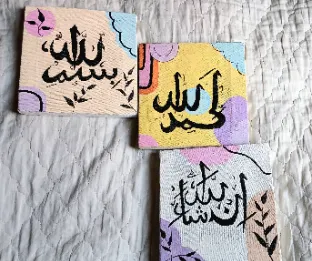 بسم الله
الحمد لله
إن شاء الله